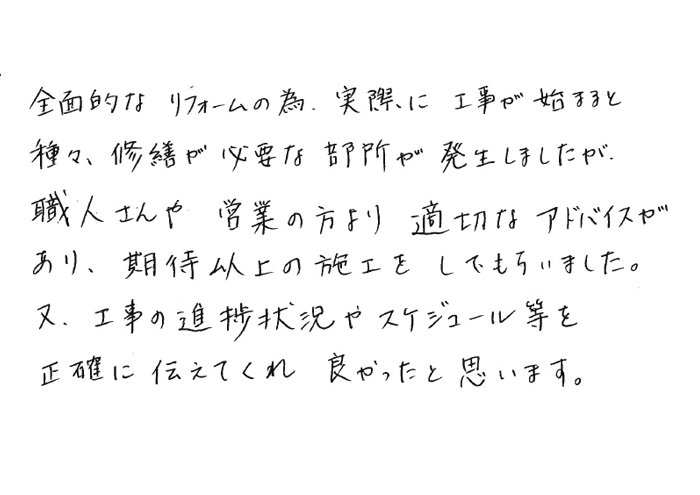 全面的な リフォームの為、実際に 工事が 始まると
種々、修繕が 必要な 部所が 発生しましたが、
職人さんや 営業の方より 適切な アドバイスが
あり、期待以上の施工を してもらいました。
又、工事の進捗状況や スケジュール等を
正確に 伝えてくれ 良かったと 思います。